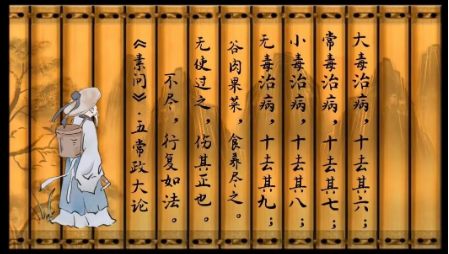 大毒治病，十去其六；
常毒治病，十去其七；
小毒治病，十去其八；
无毒治病，十去其九；
谷肉果菜，食养尽之。
无使过之 伤其正也。
不尽，行复如法。
《素问》·五常政大论